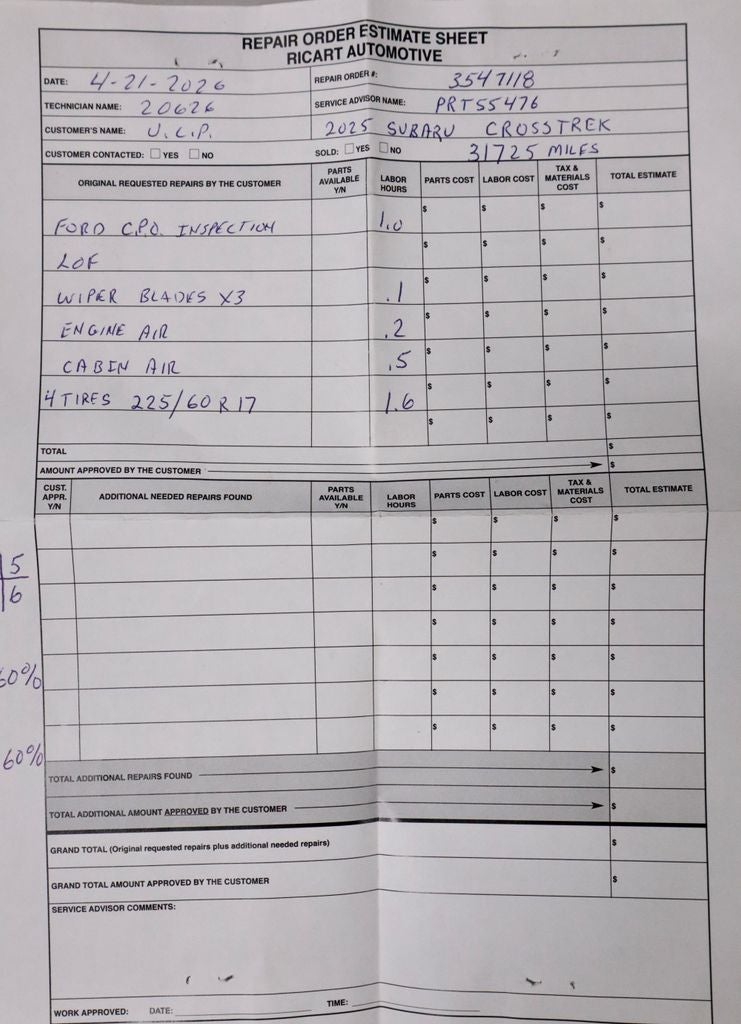 REPAIR ORDER ESTIMATE SHEET
RICART AUTOMOTIVE
DATE: 4-21-2026
REPAIR ORDER #: 3547118
TECHNICIAN NAME: 20626
SERVICE ADVISOR NAME: PRT55476
CUSTOMER'S NAME: U.C.P.
2025 SUBARU CROSSTREK
CUSTOMER CONTACTED: YES NO
SOLD: YES NO
31725 MILES
ORIGINAL REQUESTED REPAIRS BY THE CUSTOMER PARTS AVAILABLE Y/N LABOR HOURS PARTS COST LABOR COST TAX & MATERIALS COST TOTAL ESTIMATE
FORD C.P.O. INSPECTION 1.0 $ $ $ $
LOF $ $ $ $
WIPER BLADES X3 .1 $ $ $ $
ENGINE AIR .2 $ $ $ $
CABIN AIR .5 $ $ $ $
4 TIRES 225/60 R 17 1.6 $ $ $ $
$ $ $ $
TOTAL $
AMOUNT APPROVED BY THE CUSTOMER $
CUST. APPR. Y/N ADDITIONAL NEEDED REPAIRS FOUND PARTS AVAILABLE Y/N LABOR HOURS PARTS COST LABOR COST TAX & MATERIALS COST TOTAL ESTIMATE
$ $ $ $
$ $ $ $
5
6
$ $ $ $
$ $ $ $
$ $ $ $
60%
$ $ $ $
$ $ $ $
60%
TOTAL ADDITIONAL REPAIRS FOUND $
TOTAL ADDITIONAL AMOUNT APPROVED BY THE CUSTOMER $
GRAND TOTAL (Original requested repairs plus additional needed repairs) $
GRAND TOTAL AMOUNT APPROVED BY THE CUSTOMER $
SERVICE ADVISOR COMMENTS:
WORK APPROVED: DATE: TIME: